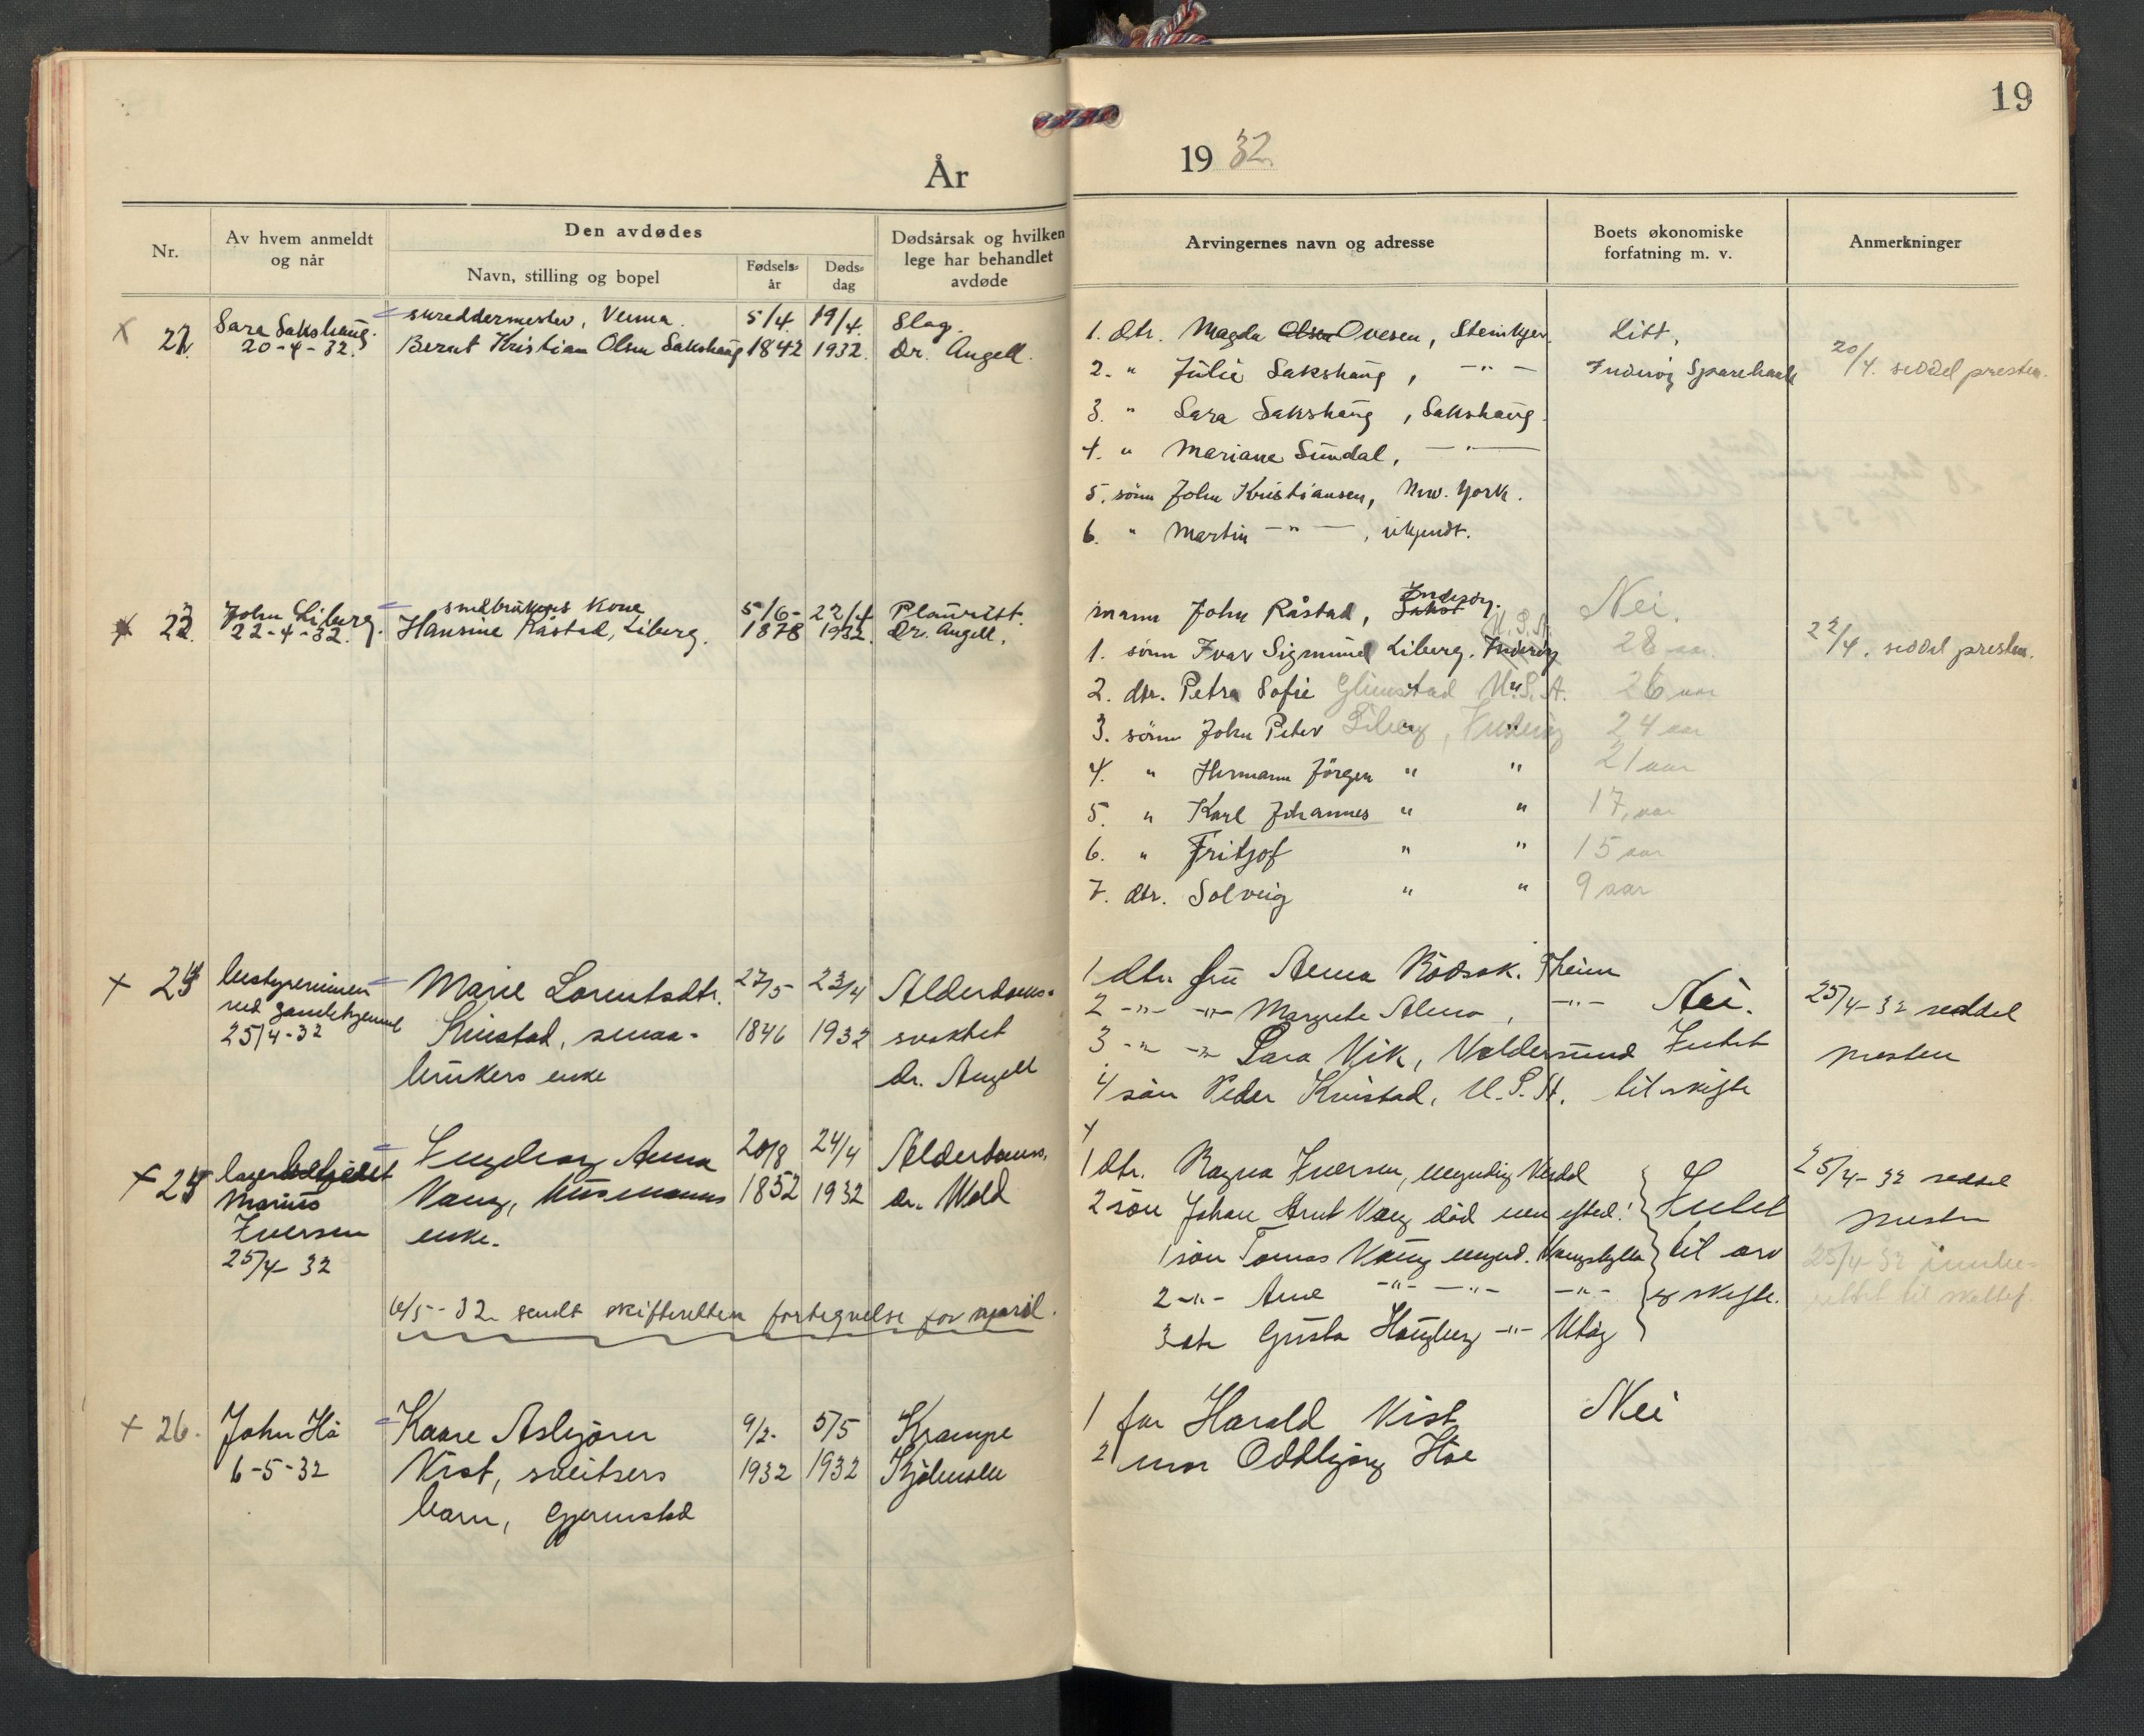 19
År
19 32
Nr.
Av hvem anmeldt
og når
Den avdødes
Navn, stilling og bopel
Fødsels-
år
Døds-
dag
Dødsårsak og hvilken
lege har behandlet
avdøde
Arvingernes navn og adresse
Boets økonomiske
forfatning m. v.
Anmerkninger
22.
Sara Sakshaug.
20-4-32.
skreddermester,
Bernt Kristian Olsen Sakshaug
5/4.
1842
19/4.
1932.
Slag.
Dr. Angell.
1. dtr. Magda Olsen Ovesen, Steinkjer.
2. " Julie Sakshaug, — " —
3. " Sara Sakshaug, Sakshaug.
4. " Mariane Sundal, — " —
5. sönn John Kristiansen, New. York.
6. " Martin — " —, ukjendt.
Litt,
Inderöy Sparebank
20/4. seddel presten.
John Liberg.
22-4-32.
småbrukers kone
Hansine Råstad, Liberg.
5/6-
1878
22/4
1932.
Pleuritt.
Dr. Angell.
mann John Råstad, Inderöy.
1. sönn Ivar Sigmund Liberg. Inderöy U.S.A.
2. dtr. Petra Sofie Glimstad U.S.A.
3. sönn John Peter Liberg, Inderöy
4. " Hermann Jörgen " "
5. " Karl Johannes " "
6. " Fritjof " "
7. dtr. Solveig " "
Nei.
28 aar
26 aar
24 aar
21 aar
17 aar
15 aar
9 aar
22/4. seddel presten.
24
bestyrerinnen
ved gamlehjemmet
25/4-32
Marie Lorentsdtr.
Kvistad, smaa-
brukers enke
27/5
1846
23/4
1932
Alderdoms-
svakhet
dr. Angell
1 dtr. fru Anna Rödsok. Theim
2 -"- -"- Margrete Almo, -"-
3 -"- -"- Sara Vik, Valdersund
4 sön Peder Kvistad, U.S.A.
Nei.
Intet
til skifte
25/4-32 seddel
presten
25
Marius
Iversen
25/4-32
Ingeborg Anna
Vang, husmanns
enke.
20/8
1852
24/4
1932
Alderdoms.
dr. Wold
1 dtr. Ragna Iversen, myndig Verdal
2 sön Johan Arnt Vang död men efterl.:
1 sön Tomas Vang mynd.
2 -"- Arne -"- -"- -"-
3 dtr Gusta Haugberg -"- Utöy
Intet
til arv
og skifte.
25/4-32 seddel
presten
6/5-32 sendt skifteretten fortegnelse for april.
26.
John Hå
6-5-32
Kaare Asbjörn
Vist, sveitsers
barn, Gjermstad
9/2-
1932
5/5
1932
Krampe
1 far Harald Vist
2 mor Oddbjörg Höe
Nei